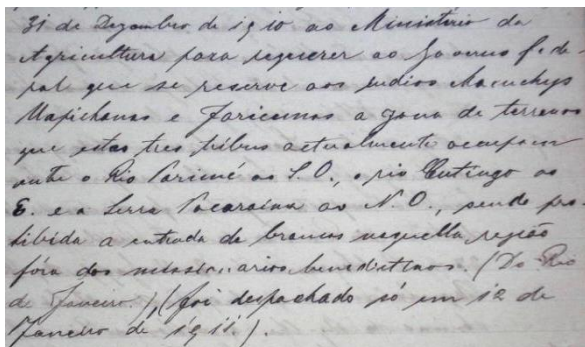 31 de Dezembro de 1910 ao Ministerio da
Agricultura para requerer ao Governo fede-
ral que se reserve aos Indios Macuchys
Uapichanas e Jaricunas a zona de terrenos
que estas tres tribus actualmente occupam
entre o Rio Parimé ao S.O., o rio Cutingo ao
E. e a Serra Pacaraima ao N.O., sendo pro-
hibida a entrada de brancos naquella região
fóra dos missionarios benedictinos. (Do Rio
de Janeiro), (foi despachado só em 12 de
Janeiro de 1911.).